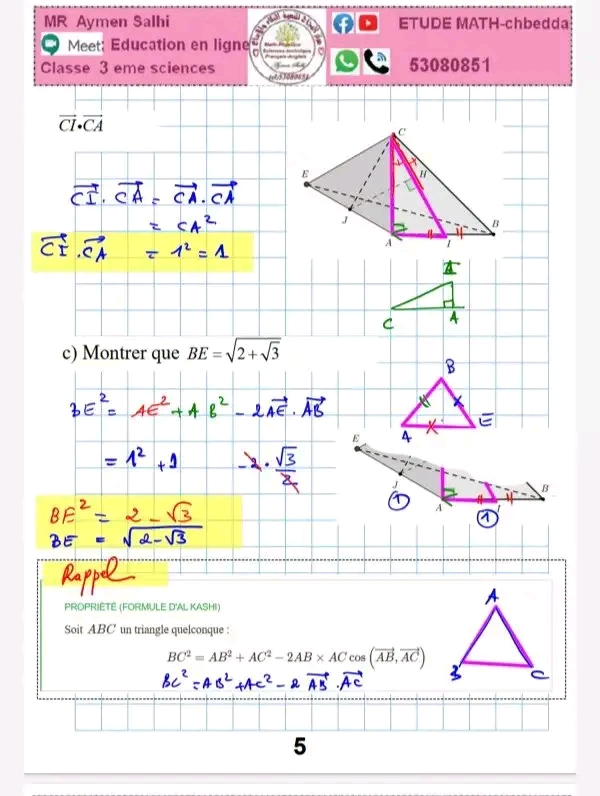 MR Aymen Salhi
Meet: Education en ligne
Classe 3 eme sciences
ETUDE MATH-chbedda
53080851
CI•CA
C
E
H
J
A
I
B
CI . CA = CA . CA
= CA²
CI . CA = 1² = 1
I
C
A
c) Montrer que BE = √(2 + √3)
BE² = AE² + AB² - 2AE . AB
= 1² + 1 - 2 . √3/2
BE² = 2 - √3
BE = √(2-√3)
B
A
E
E
J
A
I
B
1
1
Rappel
PROPRIÉTÉ (FORMULE D'AL KASHI)
Soit ABC un triangle quelconque :
BC² = AB² + AC² − 2AB × AC cos (AB, AC)
BC² = AB² + AC² - 2 AB . AC
A
B
C
5